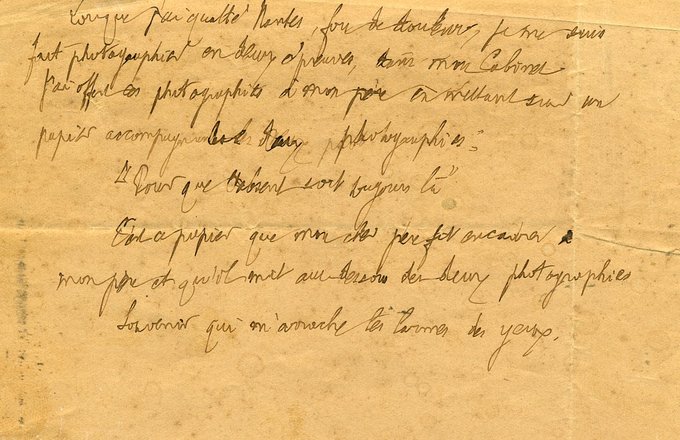 Lorsque j'ai quitté Nantes, fou de douleur, je me suis
fait photographier en deux épreuves, dans mon Cabinet
J'ai offert ces photographies à mon père en mettant sur un
papier accompagnant les deux photographies :
"Pour que l'absent soit toujours là"
C'est ce papier que mon cher père fit encadrer
mon père et qu'il mit au dessous des deux photographies
Souvenir qui m'arrache les larmes des yeux.